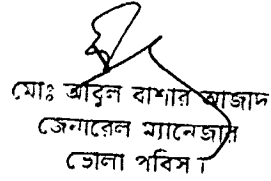 মোঃ আবুল বাশার আজাদ
জেনারেল ম্যানেজার
ভোলা পবিস।